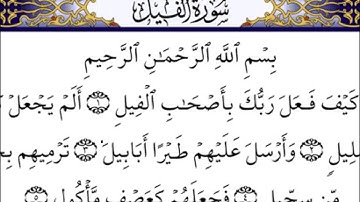 سُورَةُ الْفِيلِ
بِسْمِ ٱللَّهِ ٱلرَّحْمَـٰنِ ٱلرَّحِيمِ
كَيْفَ فَعَلَ رَبُّكَ بِأَصْحَـٰبِ ٱلْفِيلِ ١ أَلَمْ يَجْعَلْ
٢ وَأَرْسَلَ عَلَيْهِمْ طَيْرًا أَبَابِيلَ ٣ تَرْمِيهِم
مِّن سِجِّيلٍ ٤ فَجَعَلَهُمْ كَعَصْفٍ مَّأْكُولٍ ٥